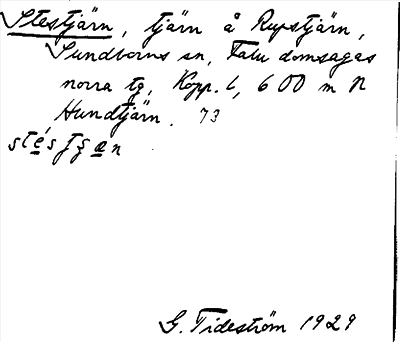 Stestjärn, tjärn å Rupstjärn,
Sundborns sn, Falu domsagas
norra tg, Kopp. l, 600 m N
Hundtjärn. 73
G. Tideström 1929